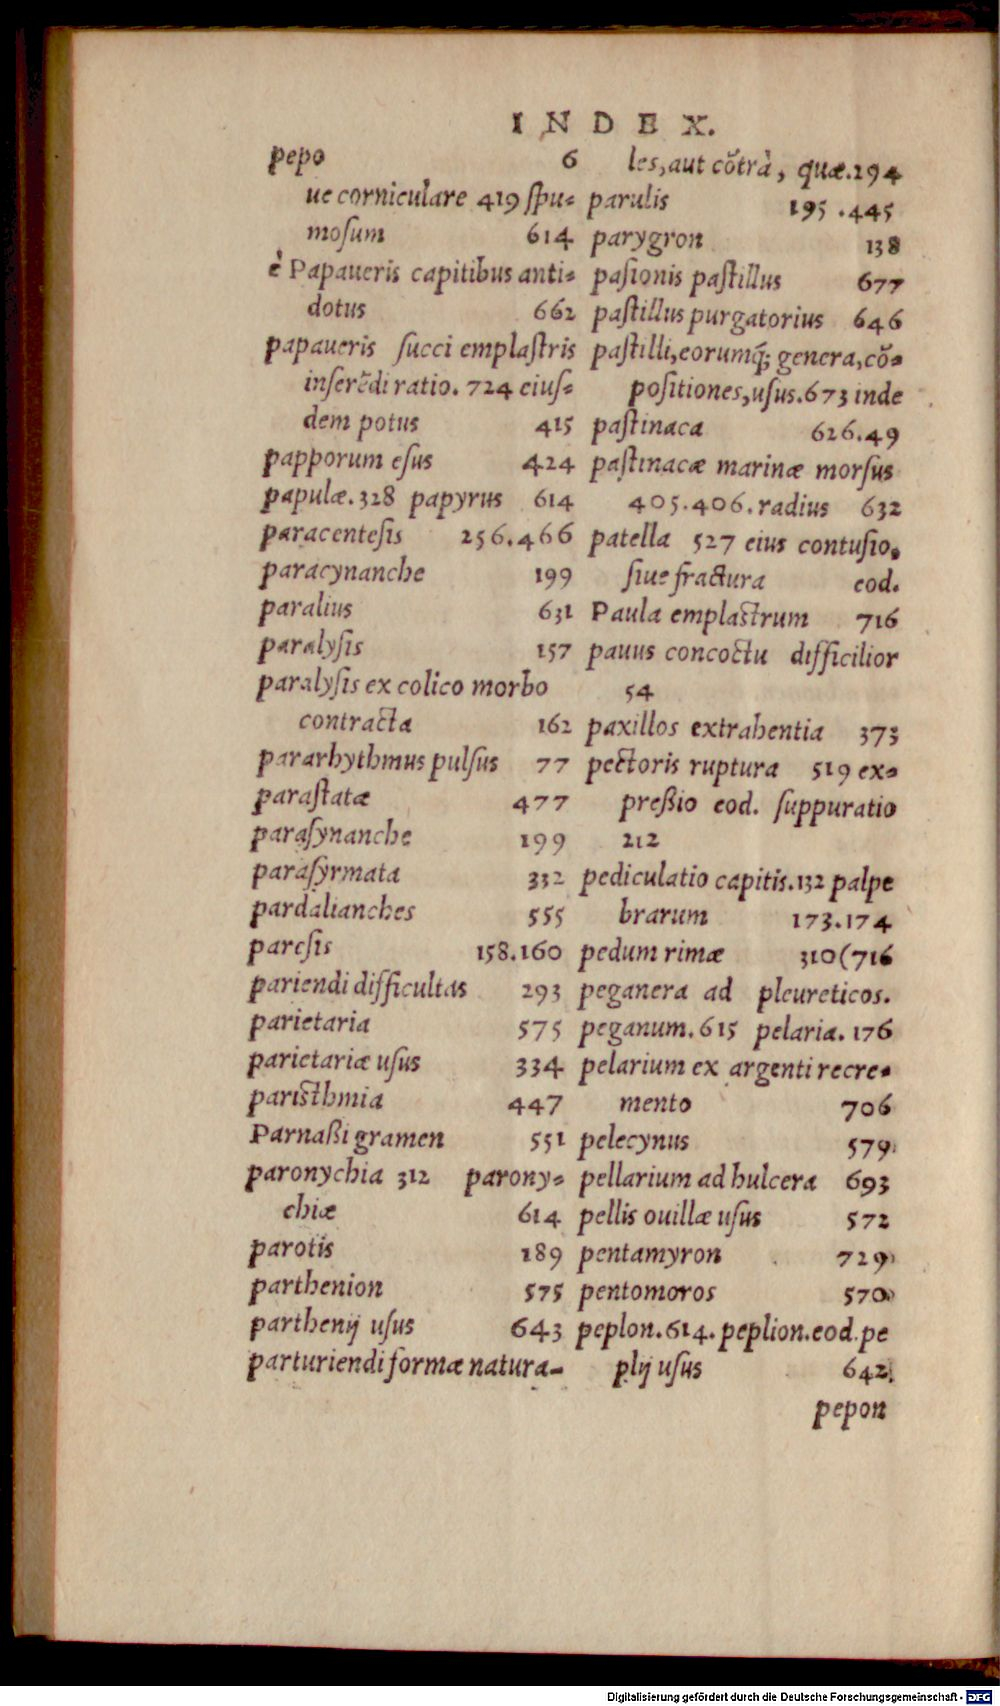 INDEX.
pepo 6
ue corniculare 419 ſpu⸗
moſum 614
è Papaueris capitibus anti⸗
dotus 662
papaueris ſucci emplaſtris
inſerēdi ratio. 724 eiuſ⸗
dem potus 415
papporum eſus 424
papulæ. 328 papyrus 614
paracenteſis 256.466
paracynanche 199
paralius 631
paralyſis 157
paralyſis ex colico morbo
contracta 162
pararhythmus pulſus 77
paraſtatæ 477
paraſynanche 199
paraſyrmata 332
pardalianches 555
pareſis 158.160
pariendi difficultas 293
parietaria 575
parietariæ uſus 334
paristhmia 447
Parnaßi gramen 551
paronychia 312 parony⸗
chiæ 614
parotis 189
parthenion 575
parthenij uſus 643
parturiendi formæ natura⸗
les, aut cōtrà, quæ. 294
parulis 195.445
parygron 138
paſionis paſtillus 677
paſtillus purgatorius 646
paſtilli, eorumq́; genera, cō⸗
poſitiones, uſus. 673 inde
paſtinaca 626.49
paſtinacæ marinæ morſus
405.406. radius 632
patella 527 eius contuſio,
ſiue fractura eod.
Paula emplastrum 716
pauus concoctu difficilior
54
paxillos extrahentia 373
pectoris ruptura 519 ex⸗
preßio eod. ſuppuratio
212
pediculatio capitis. 132 palpe
brarum 173.174
pedum rimæ 310 (716
peganera ad pleureticos.
peganum. 615 pelaria. 176
pelarium ex argenti recre⸗
mento 706
pelecynus 579
pellarium ad hulcera 693
pellis ouillæ uſus 572
pentamyron 729
pentomoros 570
peplon. 614. peplion. eod. pe
plij uſus 642
pepon
Digitalisierung gefördert durch die Deutsche Forschungsgemeinschaft - DFG